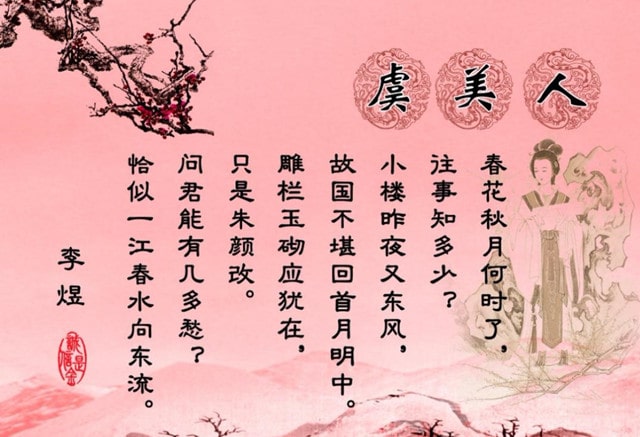 虞美人
春花秋月何时了，
往事知多少？
小楼昨夜又东风，
故国不堪回首月明中。
雕栏玉砌应犹在，
只是朱颜改。
问君能有几多愁？
恰似一江春水向东流。
李煜
诚信是金